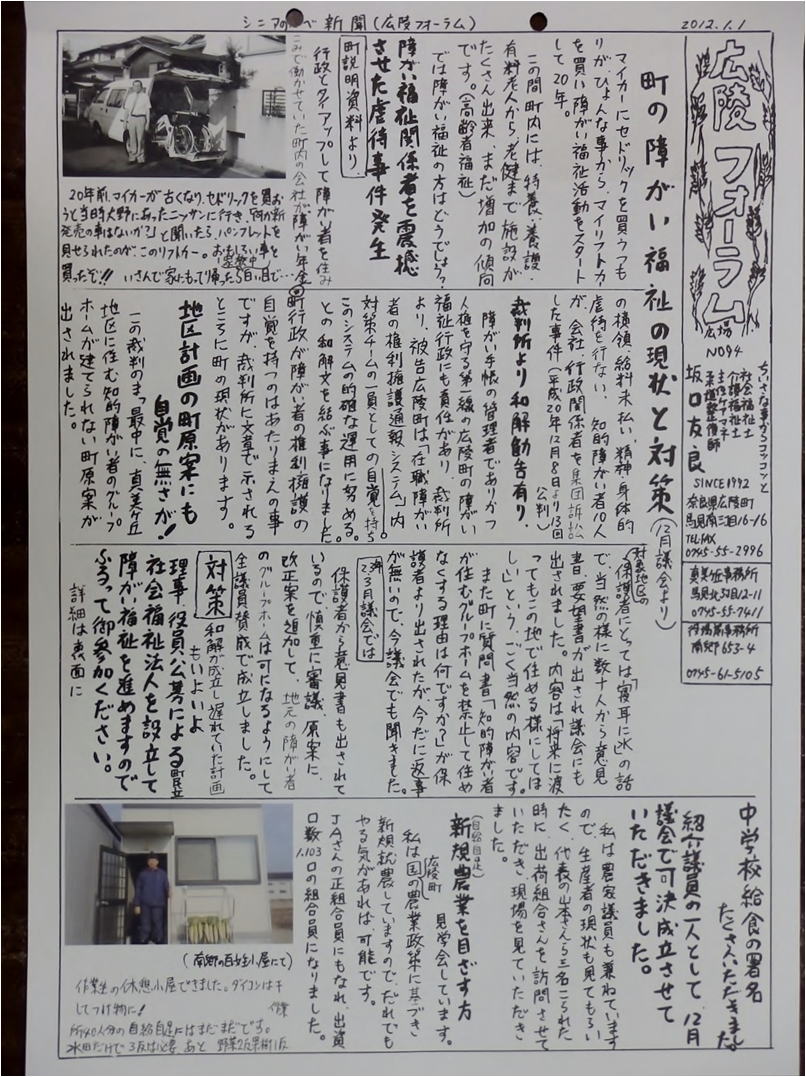 シニアの べ新聞(広陵フォーラム)
2012.1.1
広陵フォーラム
広場
NO94
ちいさな事からコツコツと
社会福祉士
介護福祉士
主任ケアマネ
柔道整復師
坂口友良
SINCE1992
奈良県広陵町
馬見南三丁目16-16
TEL FAX
0745-55-2996
真美ヶ丘事務所
馬見北5-2-12-11
0745-55-7411
役場前事務所
南郷653-4
0745-61-5105
町の障がい福祉の現状と対策
(12月議会より)
マイカーにセドリックを買うつも
りが、ひょんな事から、マイリフトカー
を買い障がい福祉活動をスタート
して20年。
この間町内には、特養・養護・
有料老人から、老健まで施設が
たくさん出来、まだ増加の傾向
です。(高齢者福祉)
では障がい福祉の方はどうでしょう?
障がい福祉関係者を震撼
させた虐待事件発生
町説明資料より、
行政とタイアップして障がい者を住み
こみで働かせていた町内の会社が障がい年金
20年前、マイカーが古くなり、セドリックを買お
うと当時大野にあったニッサンに行き、「何か新
発売の車はないか?」と聞いたら、パンフレットを
見せられたのが、このリフトカー。おもしろい車と
買ったぞ!! いさんで家にもって帰った5日い目で…
の横領、給料未払い、精神・身体的
虐待を行ない、知的障がい者10人
が、会社、行政関係者を集団訴訟
した事件(平成20年12月8日より13回
公判)
裁判所より和解勧告有り、
障がい手帳の管理者でありかつ
人権を守る第一線の広陵町の障がい
福祉行政にも責任があり、裁判所
より、被告広陵町は「在職障がい
者の権利擁護通報システム」内
対策チームの一員としての自覚を持ち
このシステムの的確な運用に努める。
との和解文を結ぶ事になりました。
町行政が障がい者の権利擁護の
自覚を持つのはあたりまえの事
ですが、裁判所に文章で示される
ところに町の現状があります。
地区計画の町原案にも
自覚の無さが!
この裁判のまっ最中に、真美ヶ丘
地区に住む知的障がい者のグループ
ホームが建てられない町原案が
出されました。
対象地区の
保護者にとっては「寝耳に水」の話
で、当然の様に数十人から意見
書・要望書が出され議会にも
出されました。内容は「将来に渡
ってもこの地で住める様にしてほ
しい」という、ごく当然の内容です。
また町に質問書「知的障がい者
が住むグループホームを禁止して住め
なくする理由は何ですか?」が保
護者より出されたが、今だに返事
が無いので、今議会でも聞きました。
2,3月議会では
保護者から意見書も出されて
いるので、慎重に審議、原案に、
改正案を追加して、地元の障がい者
のグループホームは可になるようにして
全議員賛成で成立しました。
対策
和解が成立し遅れていた計画
もいよいよ
理事、役員公募による町民立
社会福祉法人を設立して
障がい福祉を進めますので
ふるって御参加ください。
詳細は裏面に
中学校給食の署名
たくさんいただきました。
紹介議員の一人として、12月
議会で可決成立させて
いただきました。
私は農家議員も兼ねています
ので、生産者の現状も見てもらい
たく、代表の山本さんら三名こられた
時に、出荷組合さんを訪問させて
いただき、現場を見ていただき
ました。
(自給自足)
新規農業を目ざす方
見学会しています。
広陵町
私は国の農業政策に基づき
新規就農していますので、だれでも
やる気があれば、可能です。
JAさんの正組合員にもなれ、出資
口数1,103口の組合員になりました。
(南郷の百姓小屋にて)
作業生の休憩小屋できました。ダイコンは干
してつけ物に!
作業
所40人分の自給自足にはまだまだです。
水田だけで3反は必要 あと 野菜2反果樹1反